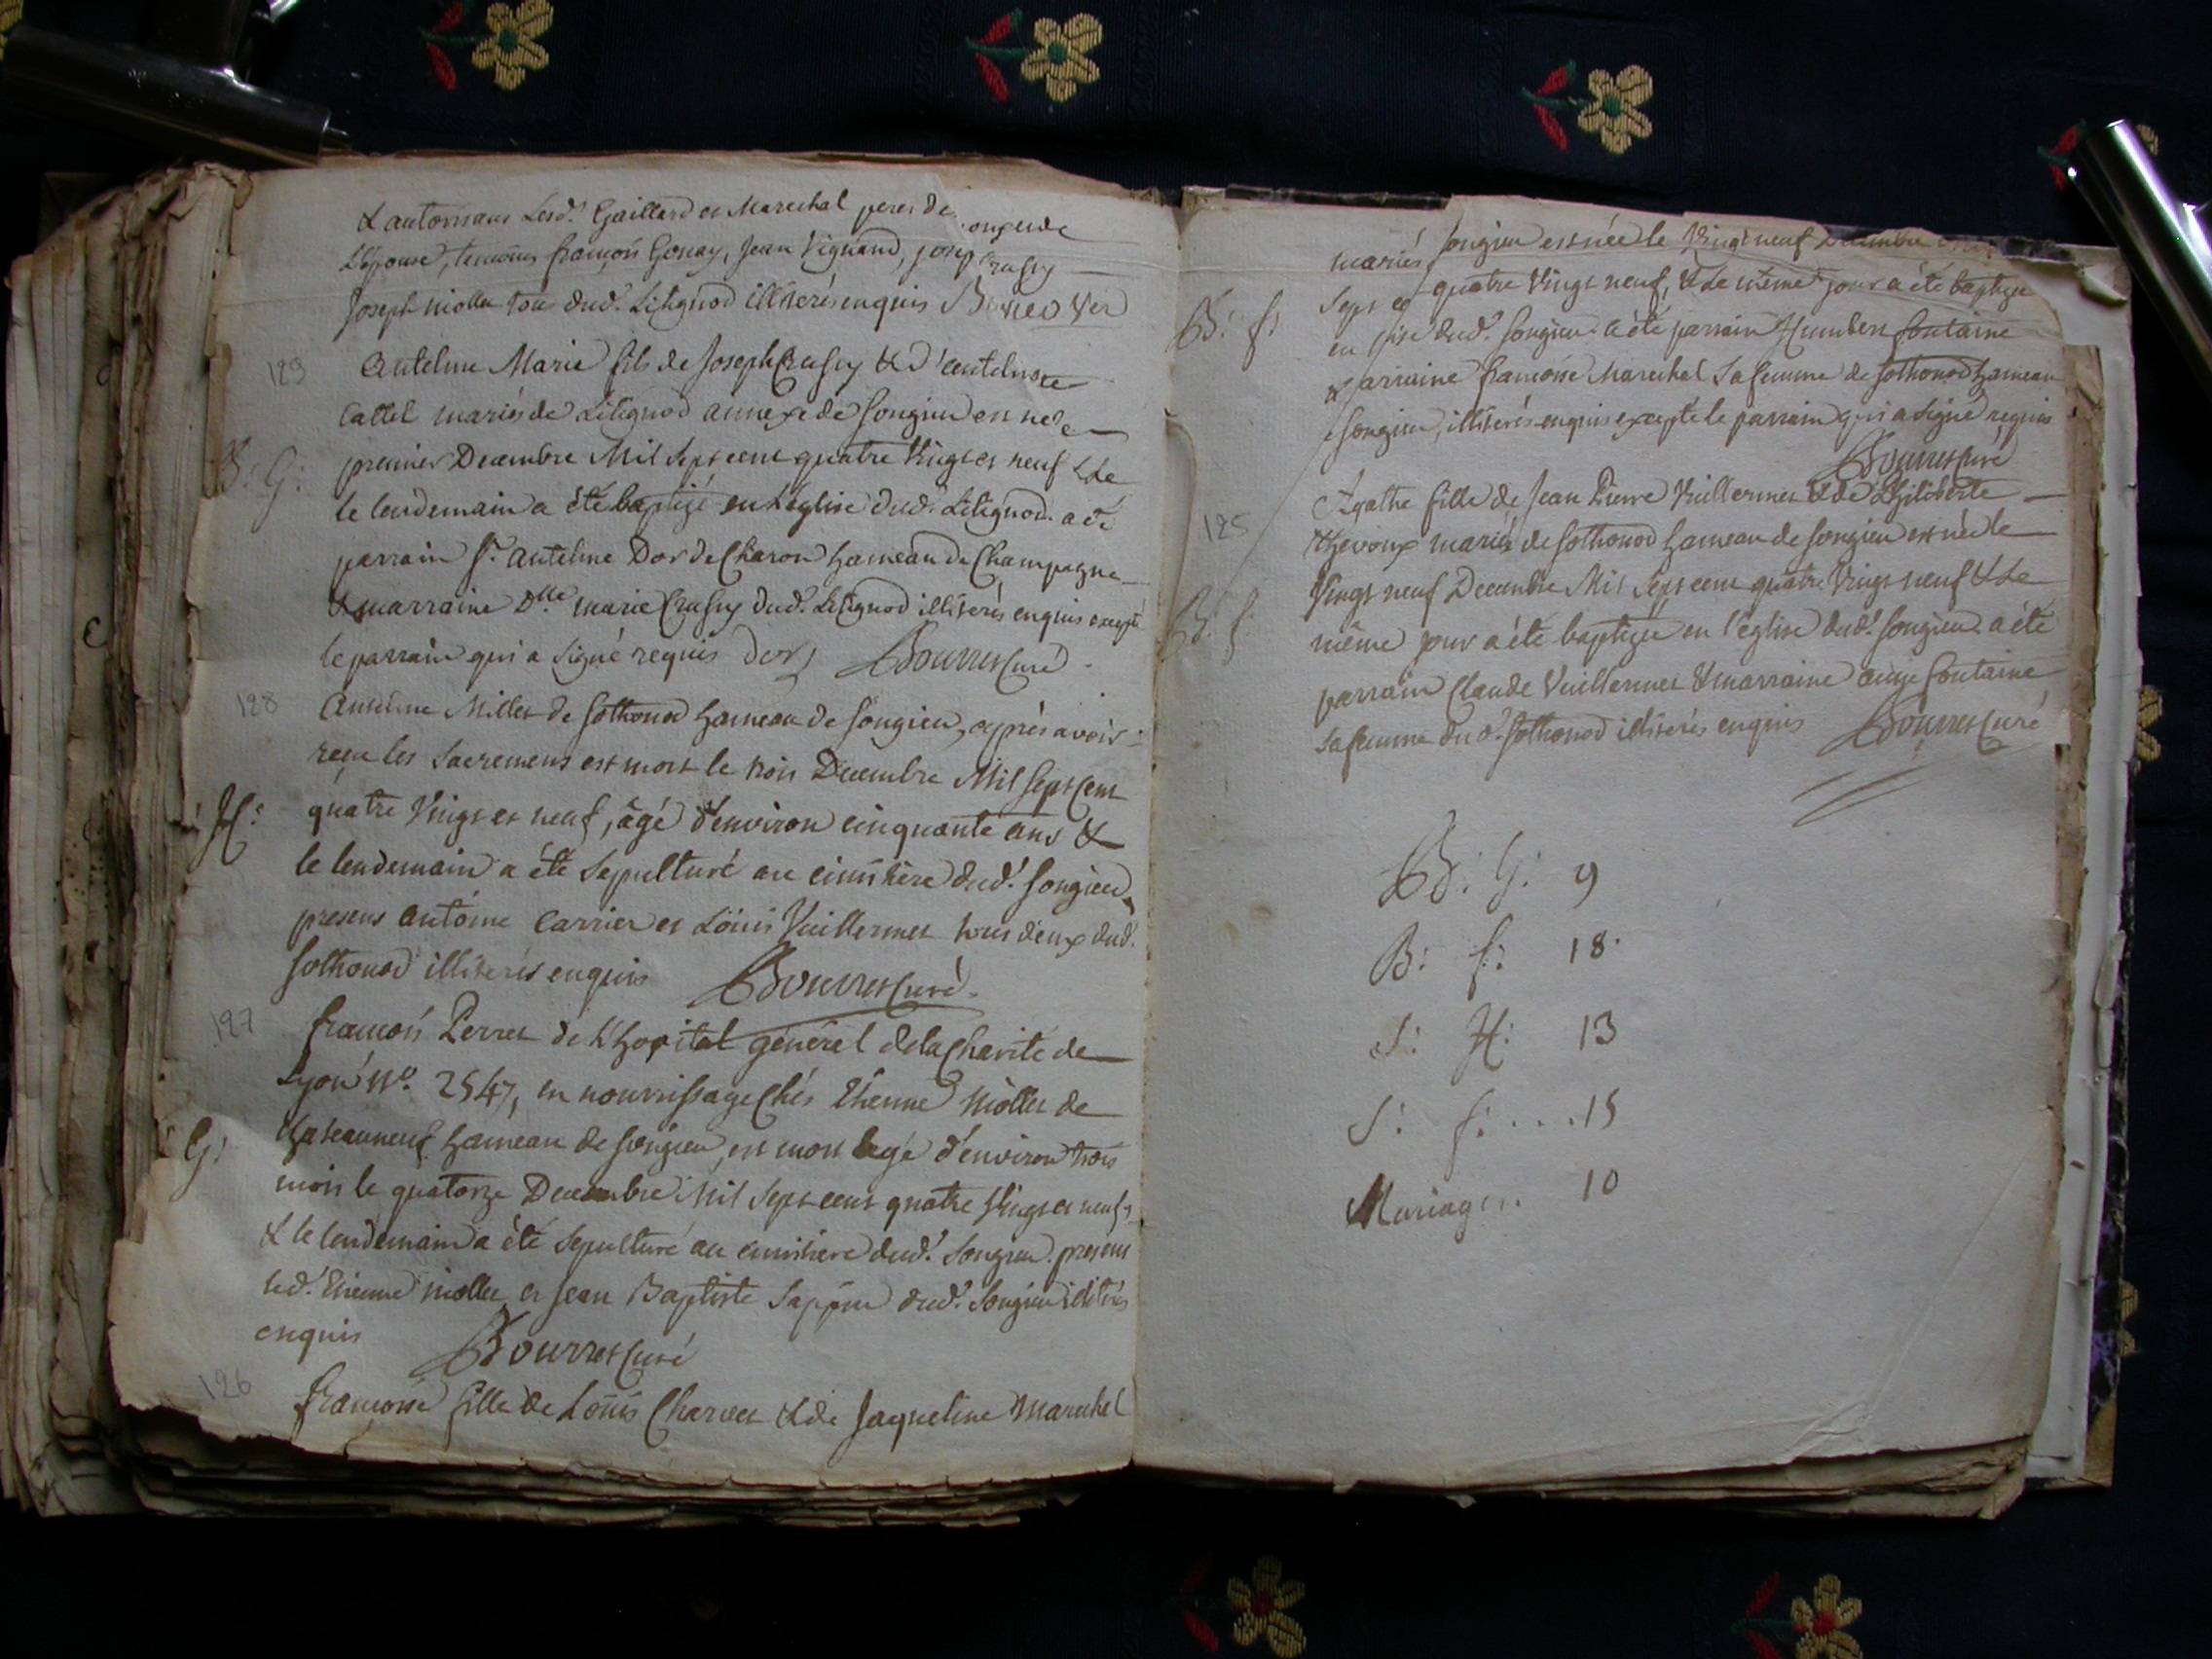 & autorisans Lesd.s Gaillard et Marechal peres de
L'épouse, temoins françois Gonay, Jean Vignand, josep Crussy
Joseph niollet tous dud.t Litignod illiterés enquis
129
Antelme Marie fils de Joseph Crussy & d'antelmette
Cattel mariés de Litignod annexe de Songieu est né le
B: G:
premier Decembre Mil Sept cent quatre Vingt et neuf & le
le lendemain a été baptisé en L'église dud.t Litignod. a été
parrain S.r Antelme Dor de Charon hameau de Champagne
& marraine D.lle marie Crussy dud.t Litignod illiterés enquis excepté
le parrain qui a signé requis Dor Bourret Curé
128
Antelme Millet de Sothonod hameau de Songieu, après avoir
reçu les Sacremens est mort le trois Decembre Mil Sept Cent
H:
quatre Vingt et neuf, âgé d'environ cinquante ans &
le lendemain a été sepulturé au cimitière dud.t Songieu
presens antoine Carrier et Loüis Vuillermet tous deux dud.t
Sothonod illiterés enquis Bourret Curé
127
françois Perret de L'hopital général de la Charité de
Lyon N.o 2547, en nourrissage chés Etienne niollet de
G:
Chateauneuf hameau de Songieu, est mort agé d'environ trois
mois le quatorze Decembre Mil Sept cent quatre Vingt et neuf
& le lendemain a été sepulturé au cimitière dud.t Songieu. presens
led.t Etienne niollet et Jean Baptiste Sappin dud.t Songieu illiterés
enquis Bourret Curé
126
françoise fille de Loüis Charvet & de Jaqueline Marechal
mariés Songieu est née le Vingt neuf Decembre
Sept ce quatre Vingt neuf, & le même jour a été baptizée
B: f:
en glise dud.t Songieu. a été parrain Humbert fontaine
& arraine françoise Marechal Sa femme de Sothonod hameau
e Songieu, illiterés enquis excepté le parrain qui a signé requis
Bourret Curé
125
Agathe fille de Jean Pierre Vuillermet & de Philiberte
Thevoux mariés de Sothonod hameau de Songieu est née le
B: f:
Vingt neuf Decembre Mil Sept cent quatre Vingt neuf & le
même jour a été baptizée en l'église dud.t Songieu. a été
parrain Claude Vuillermet & marraine fontaine
Sa femme dud.t Sothonod illiterés enquis Bourret Curé
B: G: 9
B: f: 18.
S: H: 13
S: f: . . . . 15
Mariages . . 10